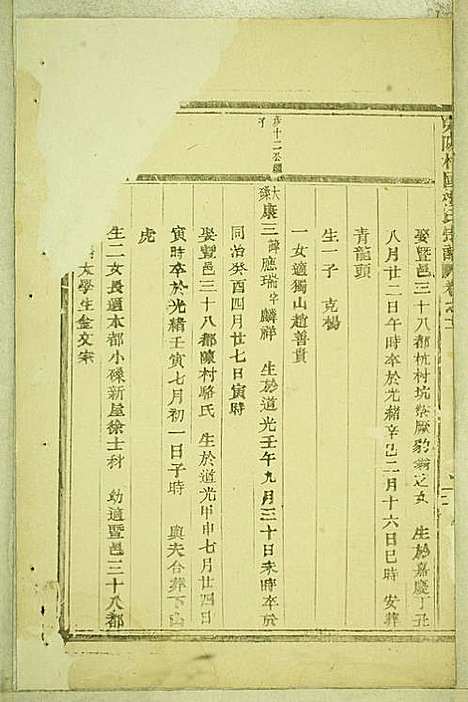 娶暨邑三十八都杭村坑 豹 之女 生於嘉慶丁丑
八月廿二日午時卒於光緒辛巳二月十六日巳時 安葬
青龍頭
生一子 克楊
一女適獨山趙善貴
康三 諱應瑞字麟祥 生於道光壬午九月三十日未時卒於
同治癸酉四月廿七日寅時
娶暨邑三十八都陳村駱氏 生於道光甲申七月廿四日
寅時卒於光緒壬寅七月初一日子時 與夫合葬下山
虎
生二女長適本都小磜新屋徐士科 幼適暨邑三十八都
太學生金文案